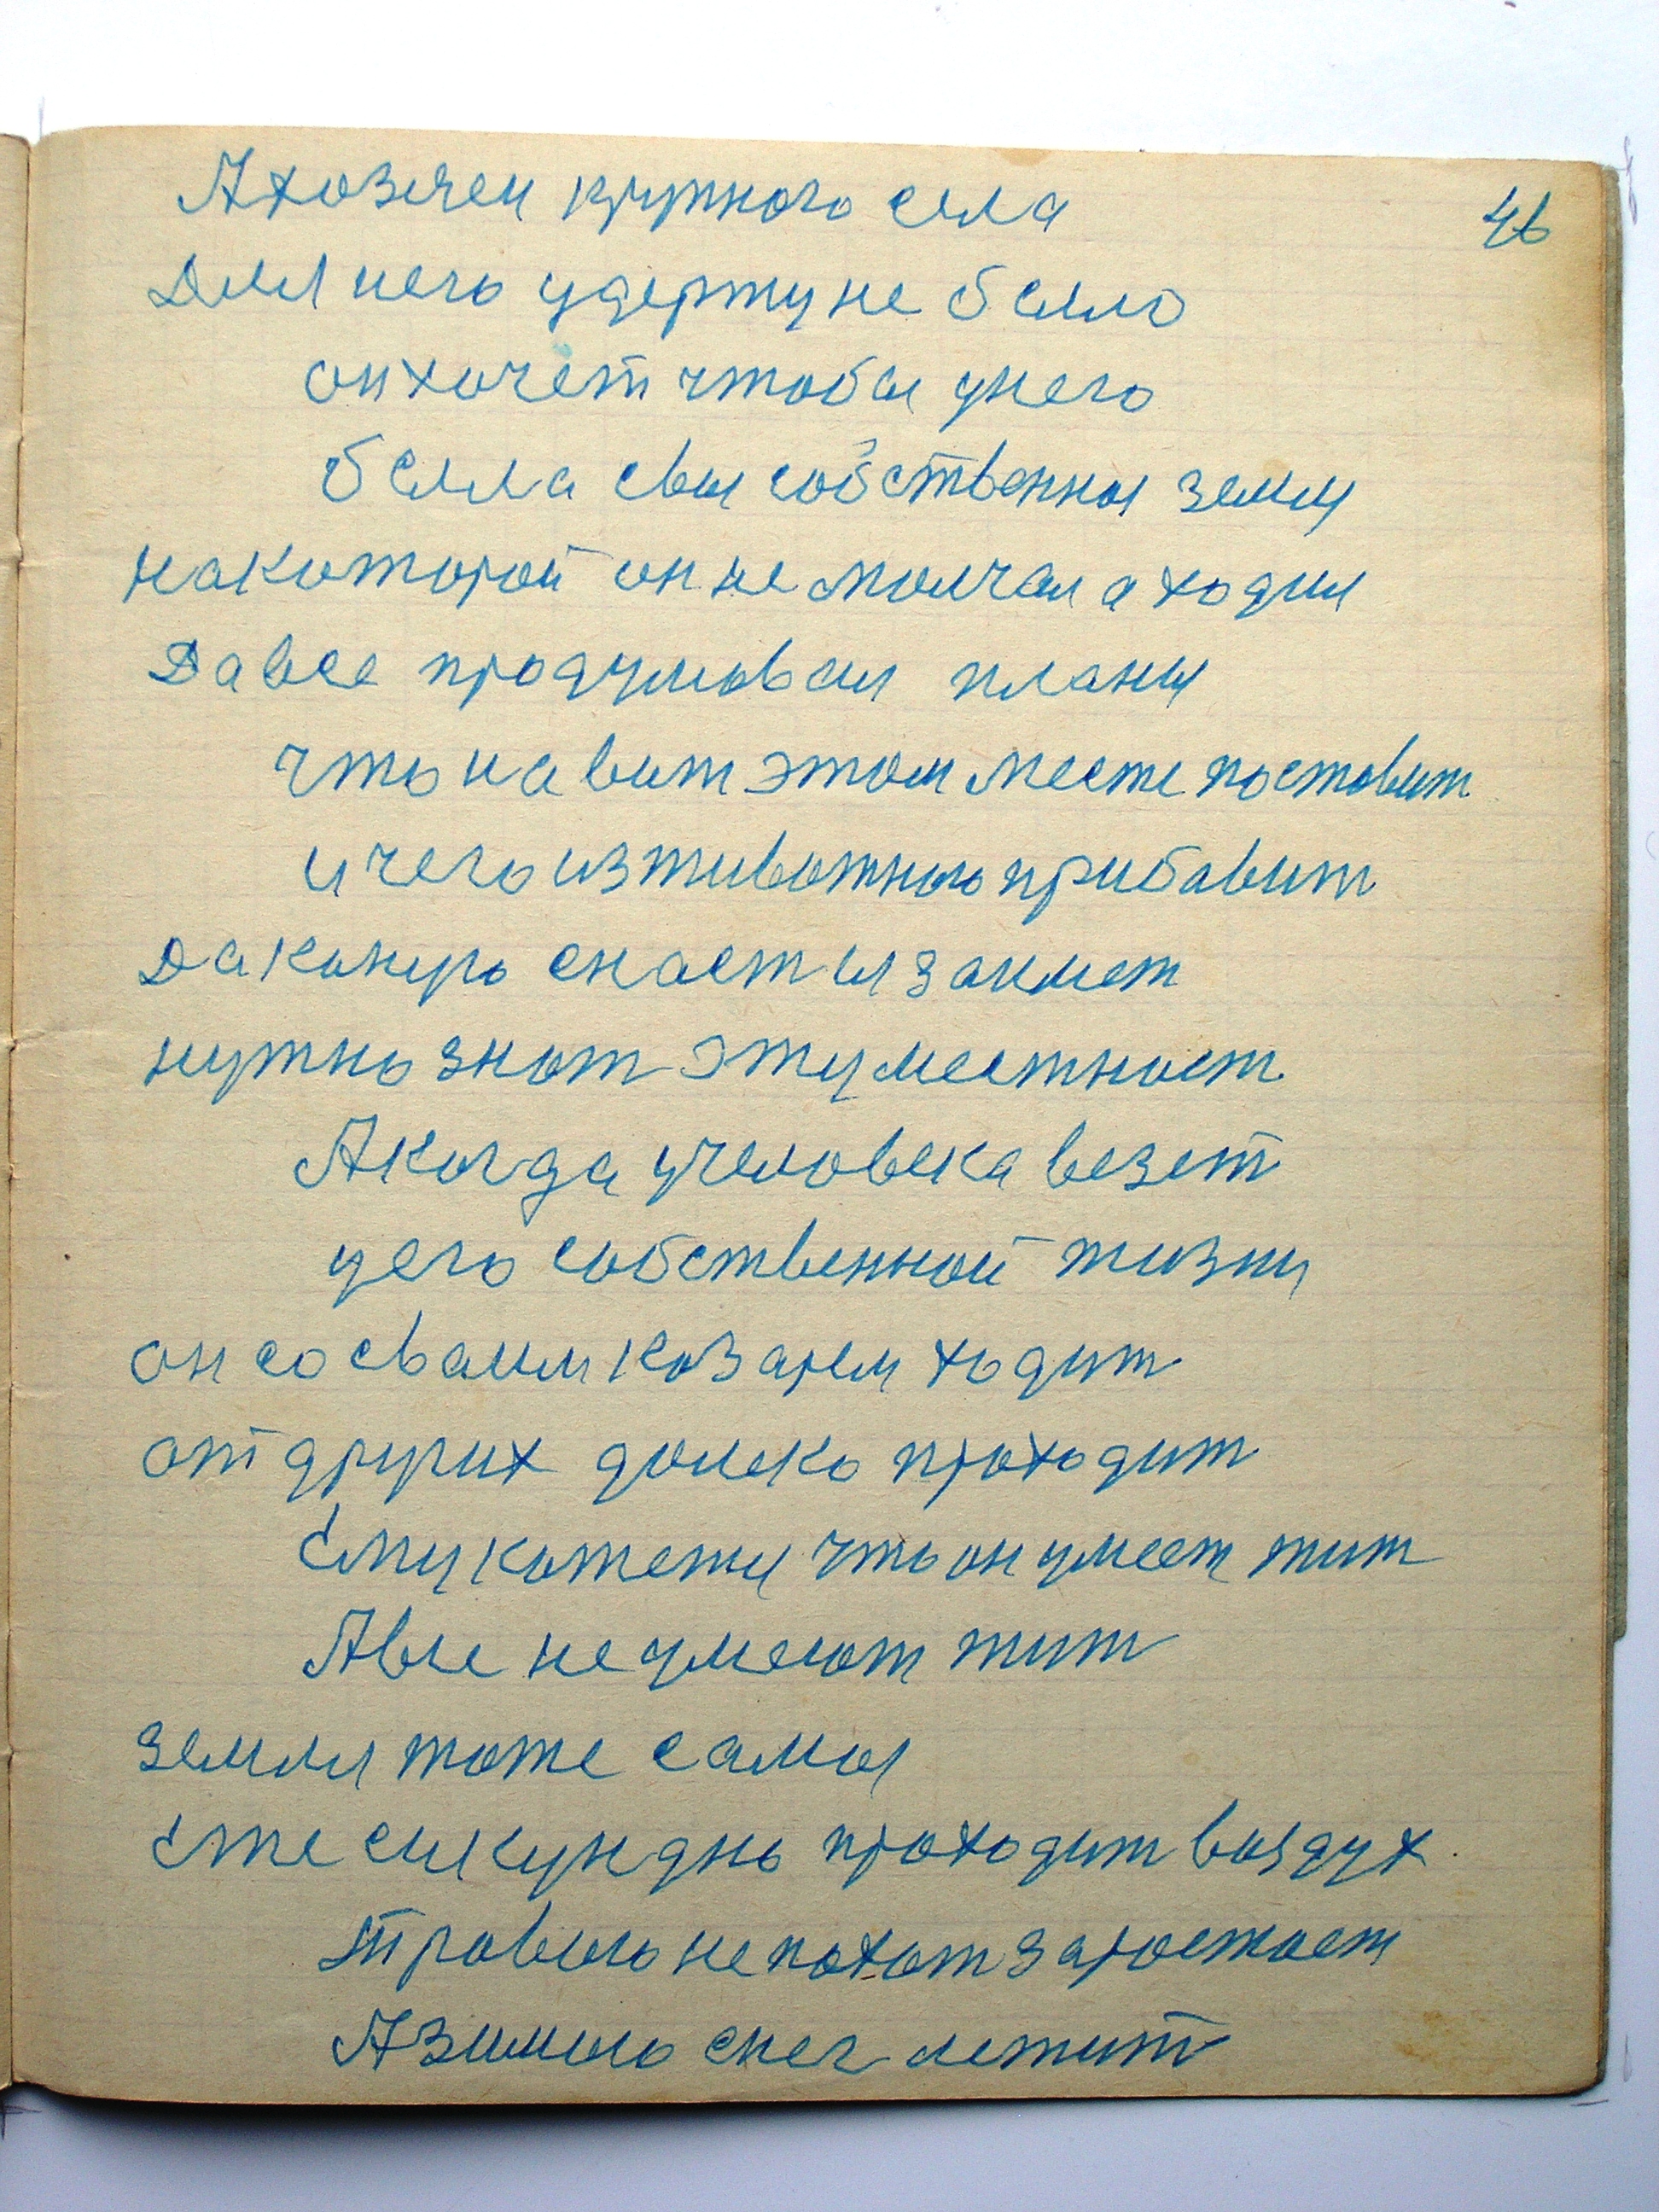 А хозяем крупного села
46
Для него удержу не было
он хочет чтобы у него
была свая собственная земля
на которой он не молчал а ходил
Да все продумовал планы
что на вит этом месте поставит
и чего из животного прибавит
Да какую снаст изаимет
нужно знат эту местност
А когда у человека везет
у его собственной жизни
он со сваим козарем ходит
от других далеко проходит
Ему кажется что он умеет жит
А все не умеют жит
земля тоже самая
Еже сикундно проходит воздух
Травою не пахат заростает
А зимою снег лежит